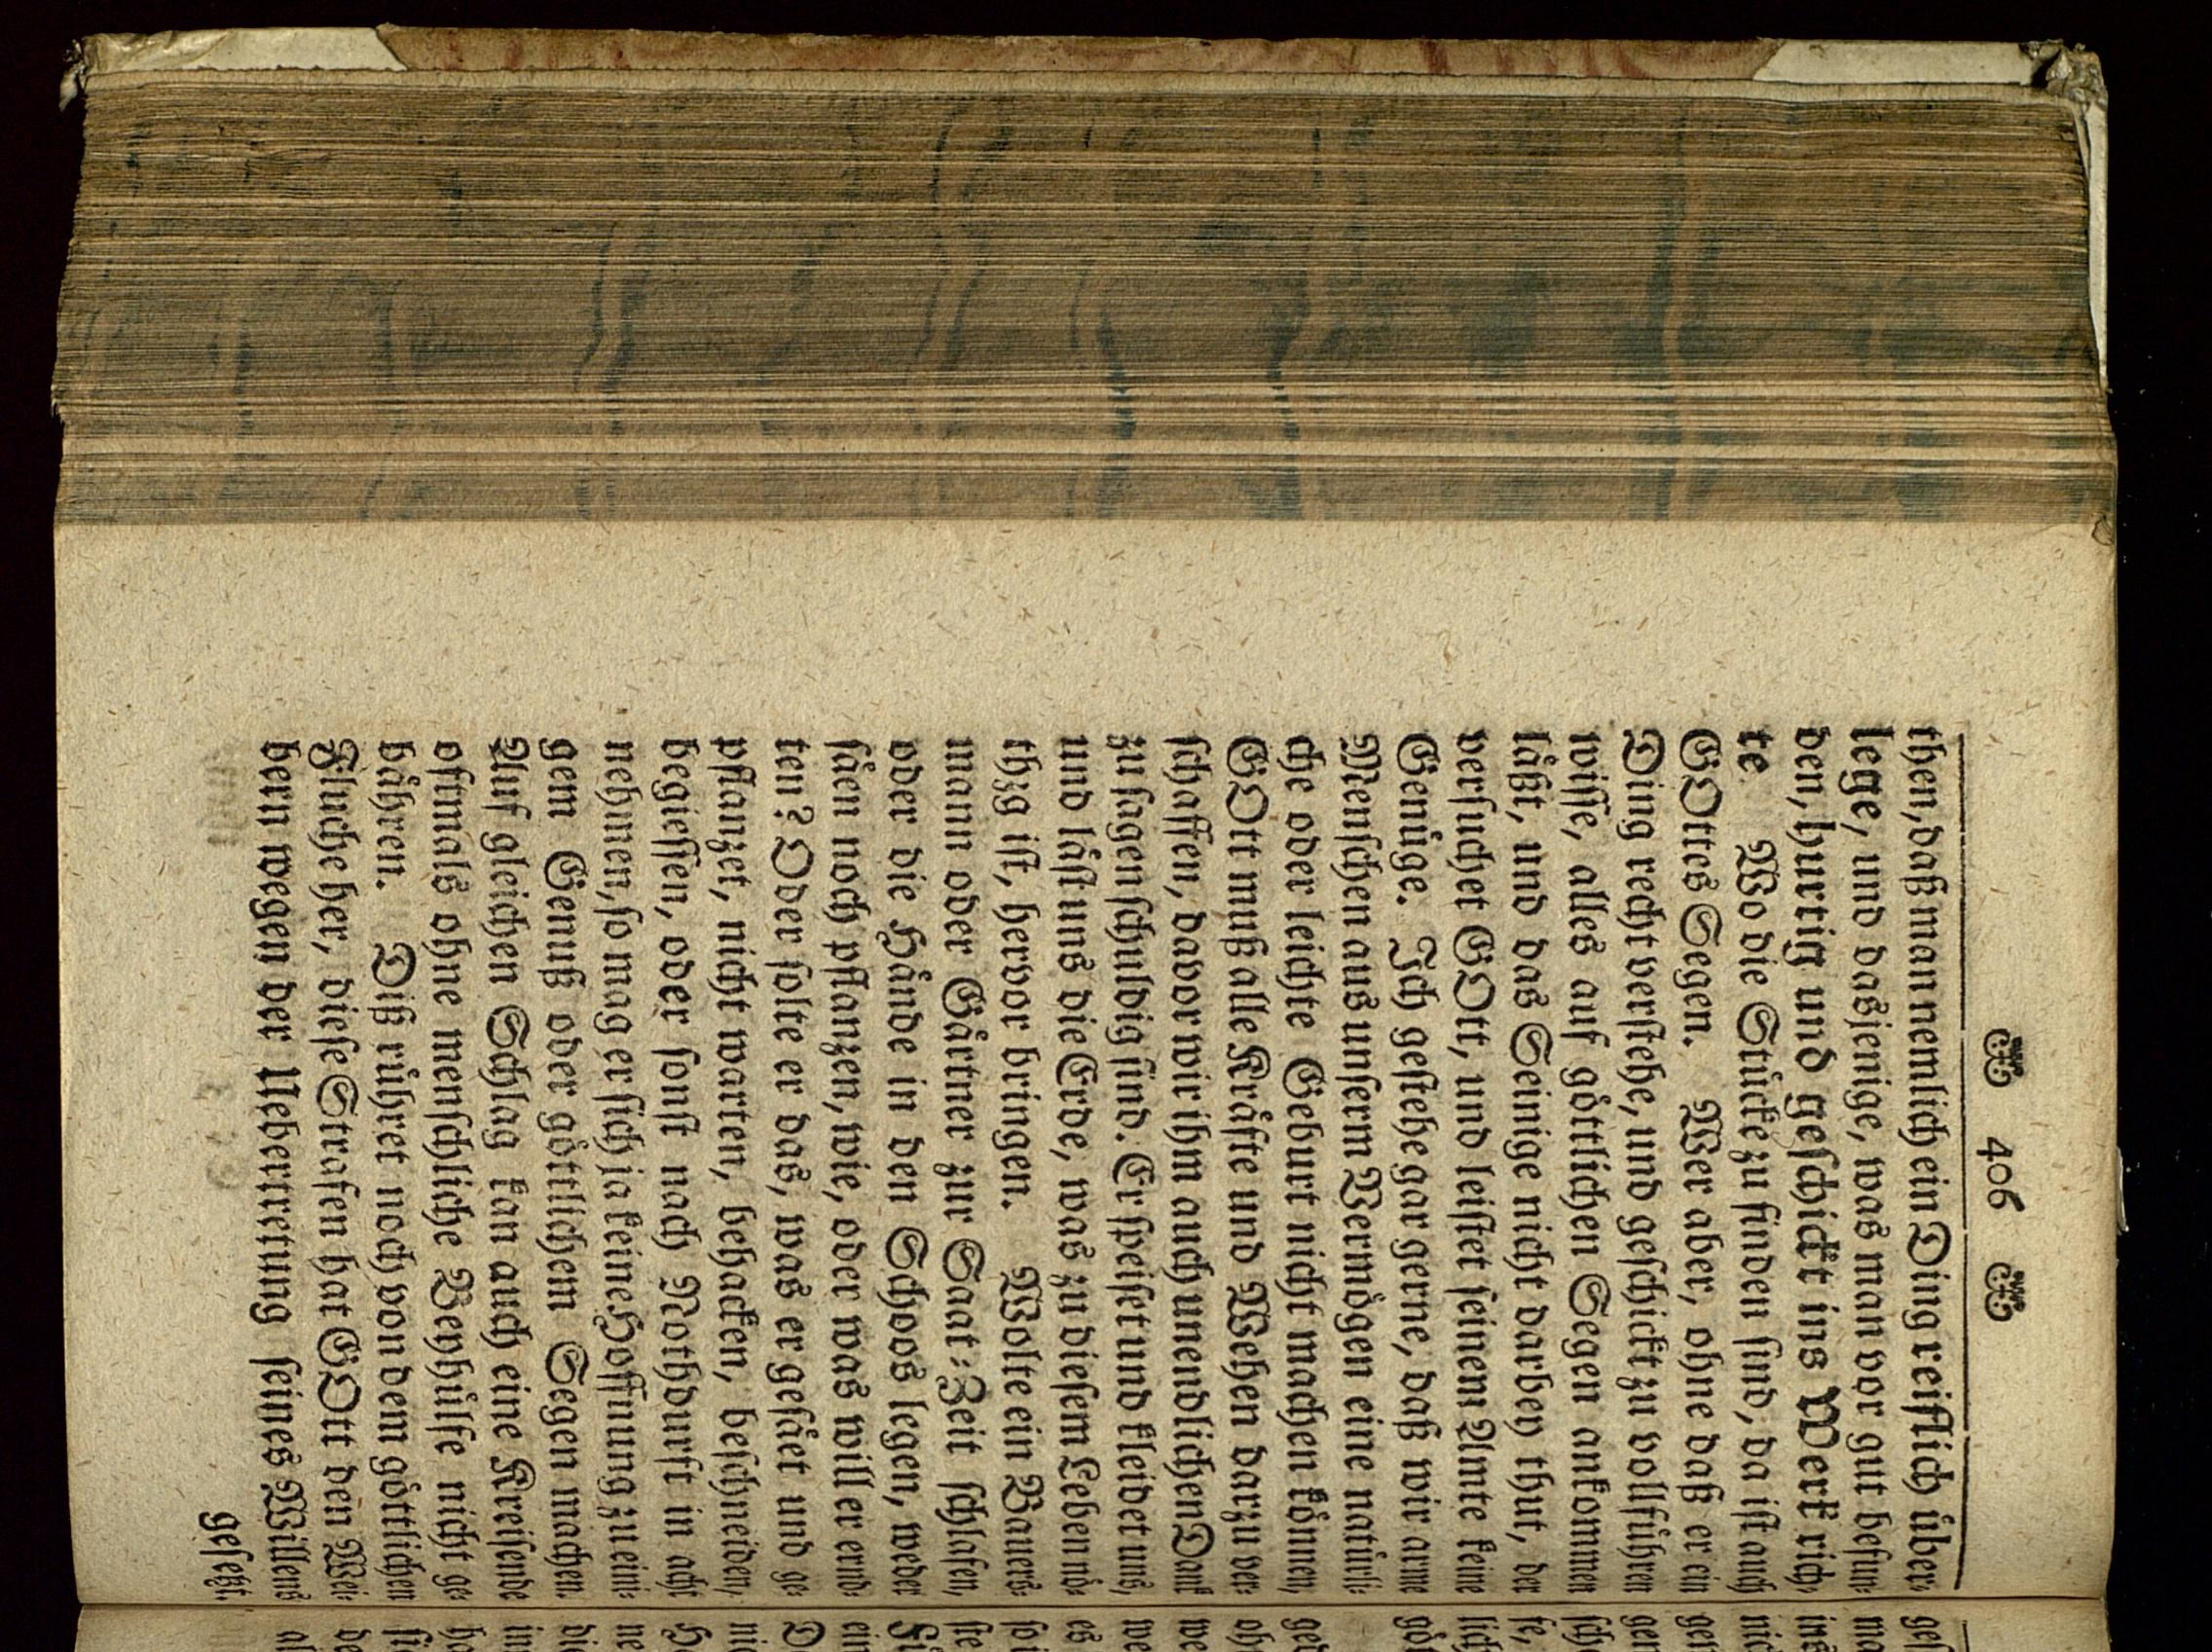 406
then, daß man nemlich ein Ding reifflich über-
lege, und dasjenige, was man vor gut befun-
den, hurtig und geschickt ins Werk rich-
te. Wo die Stücke zu finden sind, da ist auch
GOttes Segen. Wer aber, ohne daß er ein
Ding recht verstehe, und geschickt zu vollführen
wisse, alles auf göttlichen Segen ankommen
läßt, und das Seinige nicht darbey thut, der
versuchet GOtt, und leistet seinem Amte keine
Genüge. Ich gestehe gar gerne, daß wir arme
Menschen aus unserm Vermögen eine natürli-
che oder leichte Geburt nicht machen können,
GOtt muß alle Kräfte und Wehen darzu ver-
schaffen, davor wir ihm auch unendlichen Dank
zu sagen schuldig sind. Er speiset und kleidet uns,
und läst uns die Erde, was zu diesem Leben nö-
thig ist, hervor bringen. Wolte ein Bauers-
mann oder Gärtner zur Saat-Zeit schlafen,
oder die Hände in den Schoos legen, weder
säen noch pflanzen, wie, oder was will er ernd-
ten? Oder solte er das, was er gesäet und ge-
pflanzet, nicht warten, behacken, beschneiden,
begiessen, oder sonst nach Nothdurft in acht
nehmen, so mag er sich ja keine Hoffnung zu eini-
gem Genuß oder göttlichem Segen machen.
Auf gleichen Schlag kan auch eine Kreisende
oftmals ohne menschliche Beyhülfe nicht ge-
bähren. Diß rühret noch von dem göttlichen
Fluche her, diese Strafen hat GOtt den Wei-
bern wegen der Uebertretung seines Willens
gesetzt.